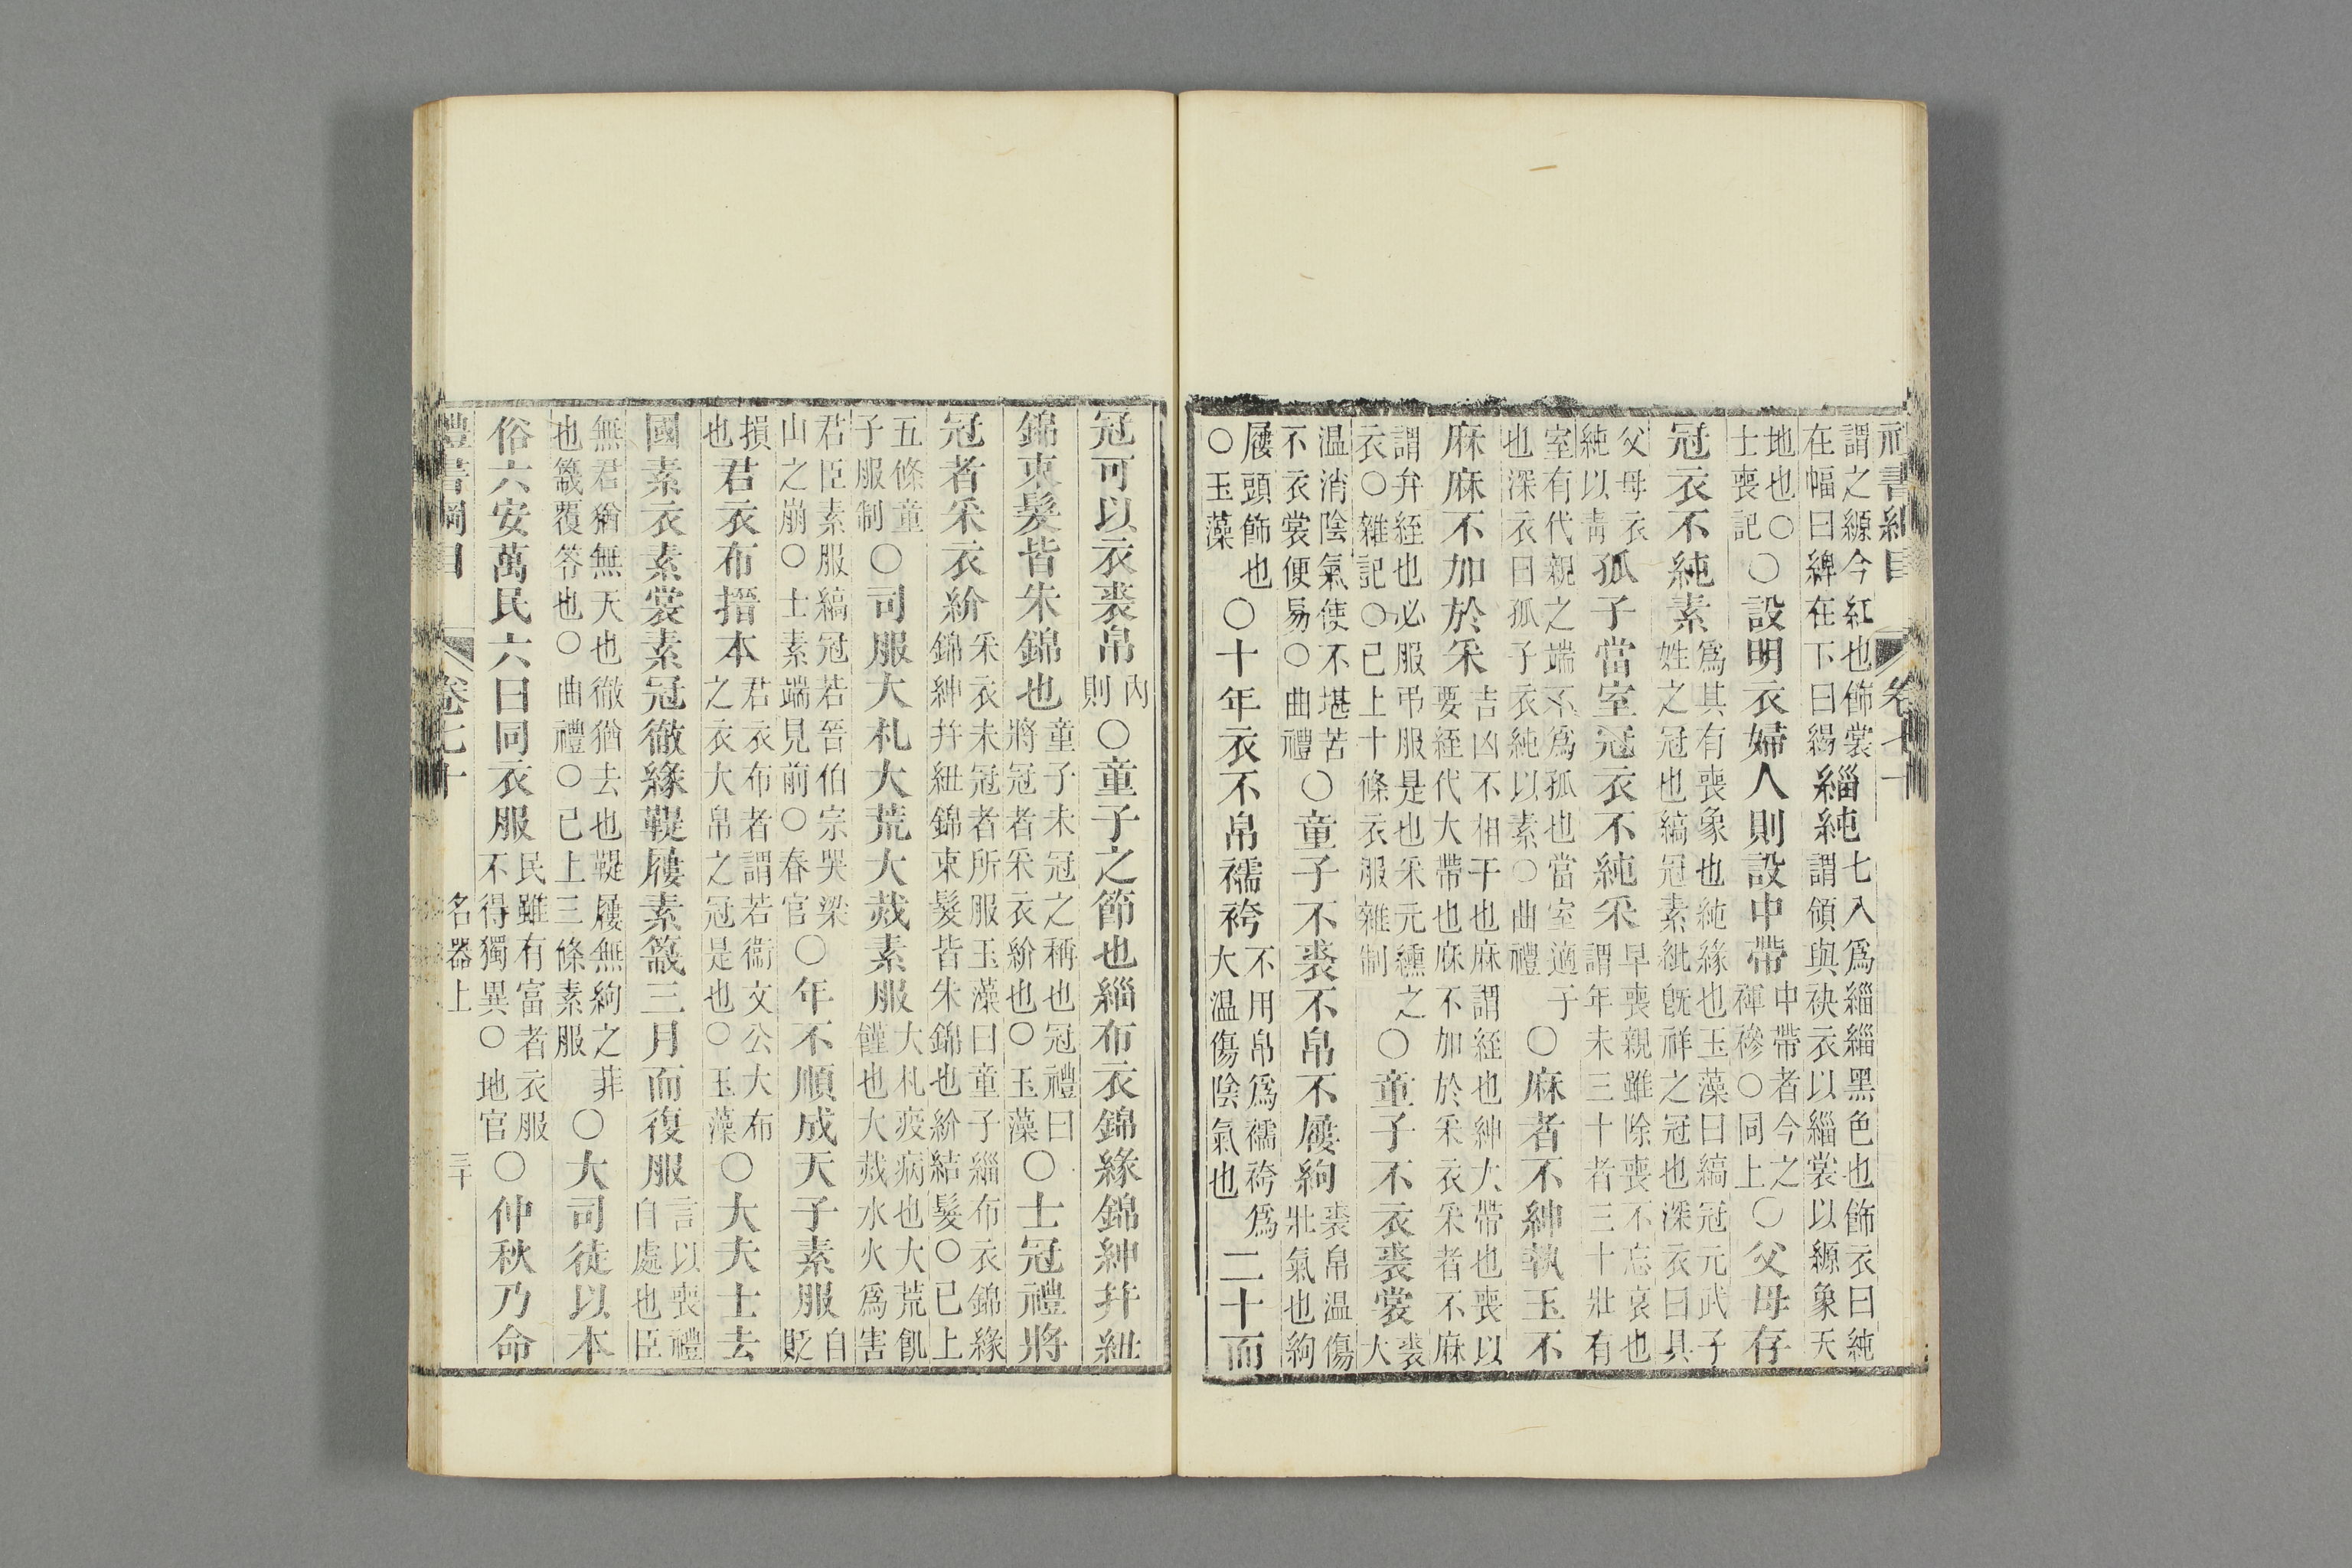 謂之縓今紅也飾裳在幅曰綼在下曰緆緇純七入爲緇緇黑色也飾衣曰純謂領與袂衣以緇裳以縓象天
地也○士喪記○設明衣婦人則設中帶中帶者今之襌襂○同上○父母存
冠衣不純素爲其有喪象也純緣也玉藻曰縞冠元武子姓之冠也縞冠素紕旣祥之冠也深衣曰具
父母衣純以靑孤子當室冠衣不純采早喪親雖除喪不忘哀也謂年未三十者三十壯有
室有代親之端不爲孤也當室適于也深衣曰孤子衣純以素○曲禮○麻者不紳執玉不
麻麻不加於采吉凶不相干也麻謂絰也紳大帶也喪以要絰代大帶也麻不加於采衣采者不麻
謂弁絰也必服弔服是也采元纁之衣○雜記○已上十條衣服雜制○童子不衣裘裳裘大
温消陰氣使不堪苦不衣裳便易○曲禮○童子不裘不帛不屨絇裘帛温傷壯氣也絇
屨頭飾也○玉藻○十年衣不帛襦袴不用帛爲襦袴爲大温傷陰氣也二十而
冠可以衣裘帛內則○童子之節也緇布衣錦緣錦紳幷紐
錦束髮皆朱錦也童子未冠之稱也冠禮曰將冠者采衣紒也○玉藻○士冠禮將
冠者采衣紒采衣未冠者所服玉藻曰童子緇布衣錦緣錦紳幷紐錦束髮皆朱錦也紒結髮○已上
五條童子服制○司服大札大荒大烖素服大札疫病也大荒飢饉也大烖水火爲害
君臣素服縞冠若晉伯宗哭梁山之崩○士素端見前○春官○年不順成天子素服自貶
損也君衣布搢本君衣布者謂若衞文公大布之衣大帛之冠是也○玉藻○大夫士去
國素衣素裳素冠徹緣鞮屨素簚三月而復服言以喪禮自處也臣
無君猶無天也徹猶去也鞮屨無絇之菲也簚覆笭也○曲禮○已上三條素服○大司徒以本
俗六安萬民六曰同衣服民雖有富者衣服不得獨異○地官○仲秋乃命
禮書綱目 卷七十 名器上 三十